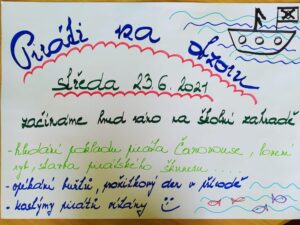 Piráti na obzoru
středa 23.6.2021
začínáme hned ráno na školní zahradě
- hledání pokladu piráta Černovouse, lovení
ryb, stavba pirátského škuneru.....
- opékání buřtů, požitkový den v přírodě
- kostýmy pirátů vítány ☺